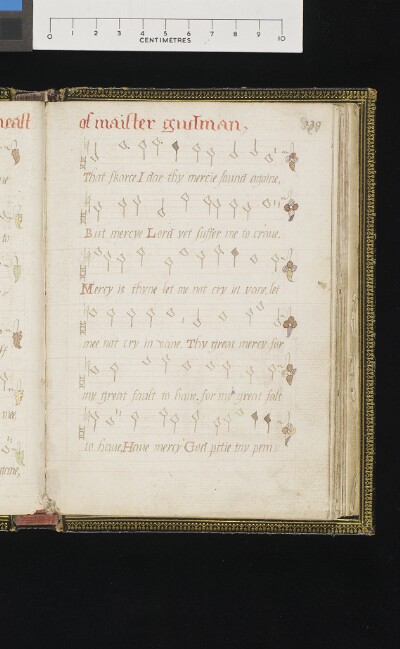 0 1 2 3 4 5 6 7 8 9 10
CENTIMETRES
of maister gudman,
That skorce I dar thy mercie sound againe,
But mercye Lord yet suffer me to craue.
Mercy is thyne let me not cry in vane, let
mee not cry in vane. Thy great mercy for
my great fault to haue. for my great falt
to haue, Haue mercy God pitie my peni